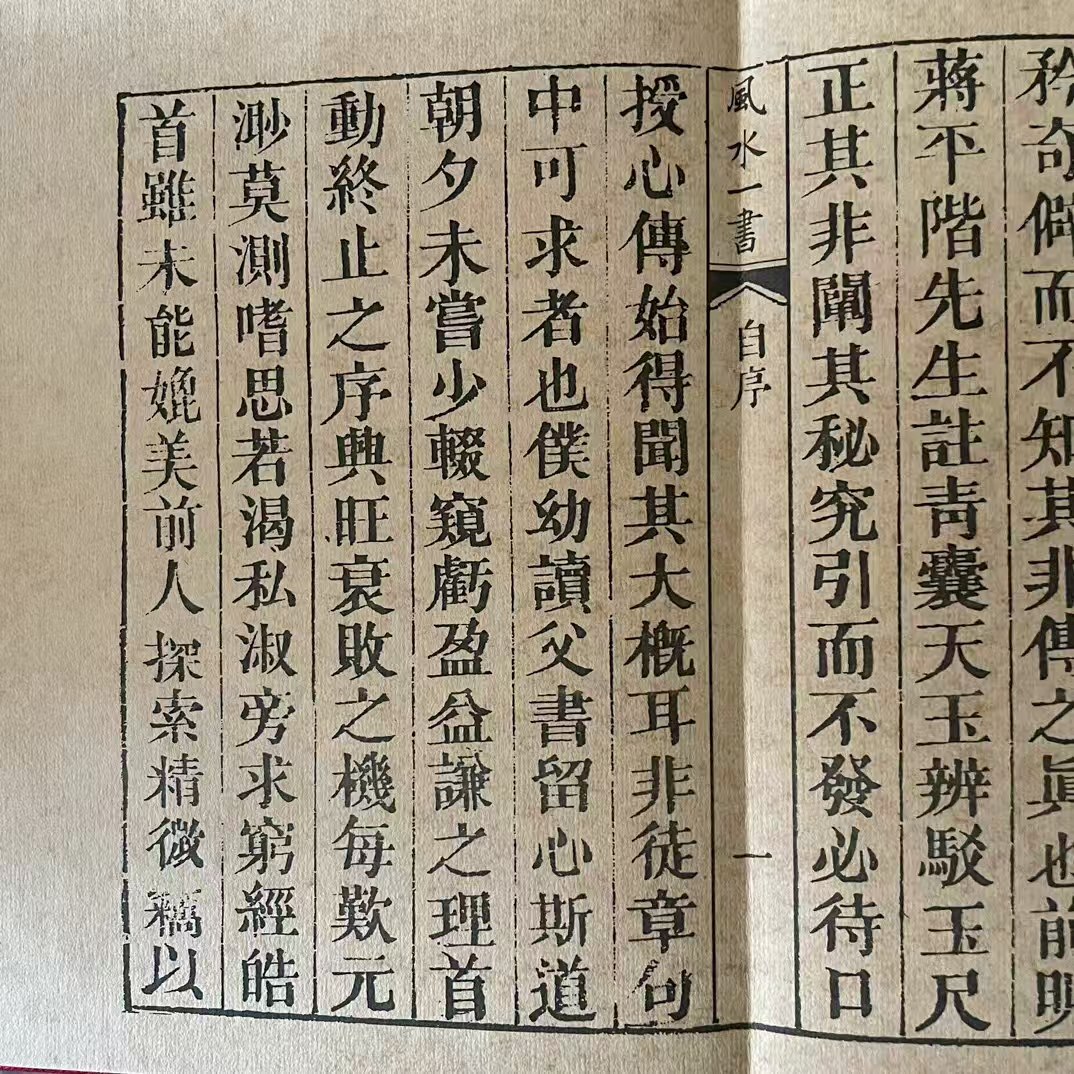 矜奇僻而不知其非傳之眞也前明
蔣平階先生註青囊天玉辨駁玉尺
正其非闡其秘究引而不發必待口
風水一書
自序
一
授心傳始得聞其大概耳非徒章句
中可求者也僕幼讀父書留心斯道
朝夕未嘗少輟窺虧盈益謙之理首
動終止之序興旺衰敗之機每歎元
渺莫測嗜思若渴私淑旁求窮經皓
首雖未能媲美前人探索精微竊以